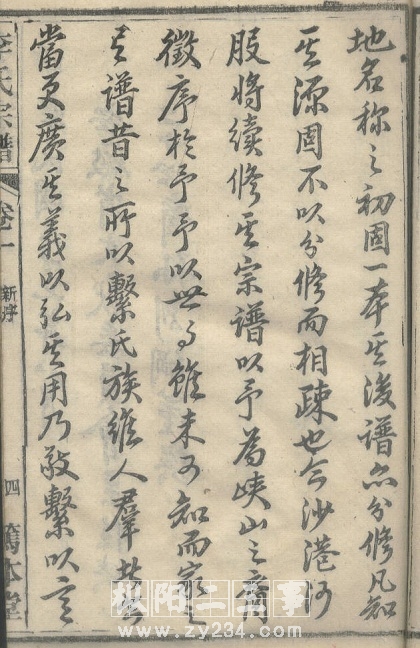 地名称之初固一本其後譜亦分修凡知
其源固不以分修而相疎也今沙港河
股将續修其宗譜以予為峽山之裔
徵序於予予以世事雖未可知而
其譜昔之所以繫氏族維人羣者
當更廣其義以弘其用乃敬繫以言
李氏宗譜
卷一
新序
四
篤本堂
枞阳二三事
www.zy234.com